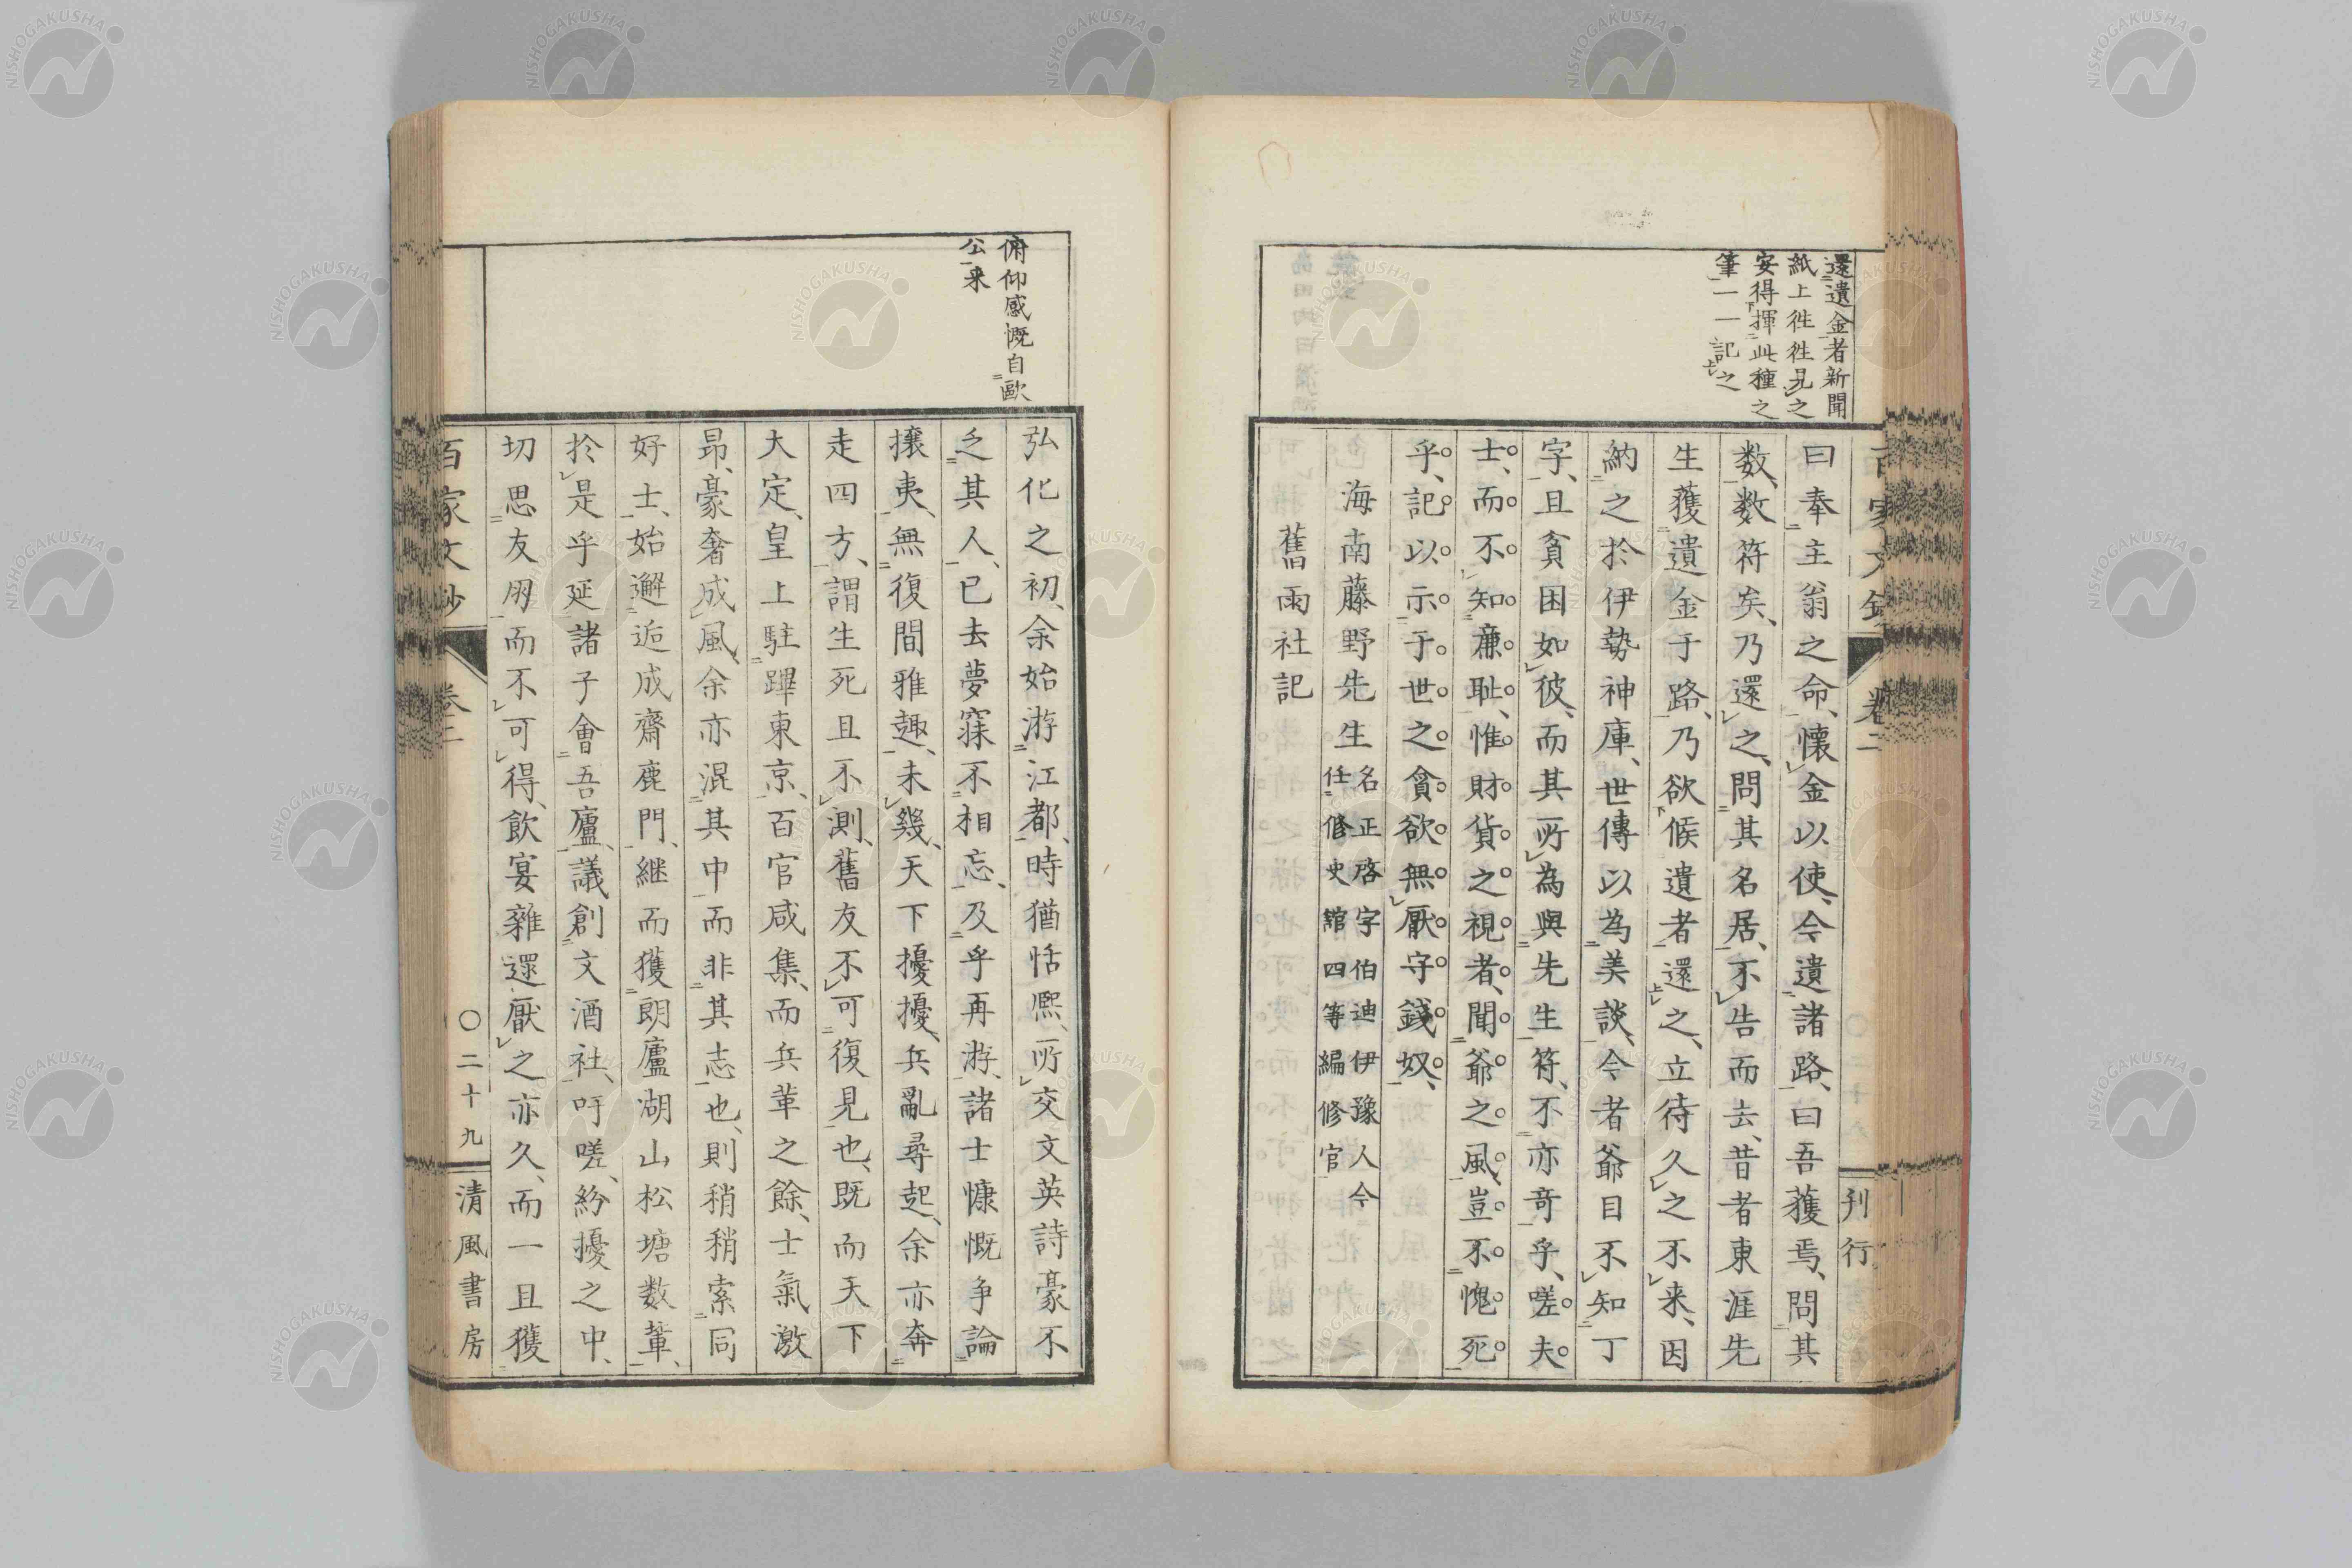 還遺金者新聞
紙上徃徃見之
安得揮此種之
筆一一記之
曰奉主翁之命、懷金以使、今遺諸路、曰吾獲焉、問其
数、数符矣、乃還之、問其名居、不告而去、昔者東涯先
生獲遺金于路、乃欲候遺者還之、立待久之不来、因
納之於伊勢神庫、世傳以為美談、今者爺目不知丁
字、且貧困如彼、而其所為與先生符、不亦奇乎、嗟夫
士、而不知亷耻、惟財貨之視者、聞爺之風、豈不愧死
乎、記以示于世之貪欲無厭守錢奴、
海南藤野先生
名正啓字伯迪伊豫人今
任修史舘四等編修官
舊雨社記
卷二
刊行
俯仰感慨自歐
公来
弘化之初、余始游江都、時猶恬熈、所交文英詩豪不
乏其人、已去夢寐不相忘、及乎再游、諸士慷慨争論
攘夷、無復間雅趣、未幾、天下擾擾、兵亂尋起、余亦奔
走四方、謂生死且不測、舊友不可復見也、既而天下
大定、皇上駐蹕東京、百官咸集、而兵革之餘、士氣激
昂、豪奢成風、余亦混其中而非其志也、則稍稍索同
好士、始邂逅成齋鹿門、継而獲朗廬湖山松塘数輩、
於是乎延諸子會吾廬、議創文酒社、吁嗟、紛擾之中、
切思友朋而不可得、飲宴雜還厭之亦久、而一旦獲
百家文鈔
卷二
〇二十九
清風書房
NISHOGAKUSHA